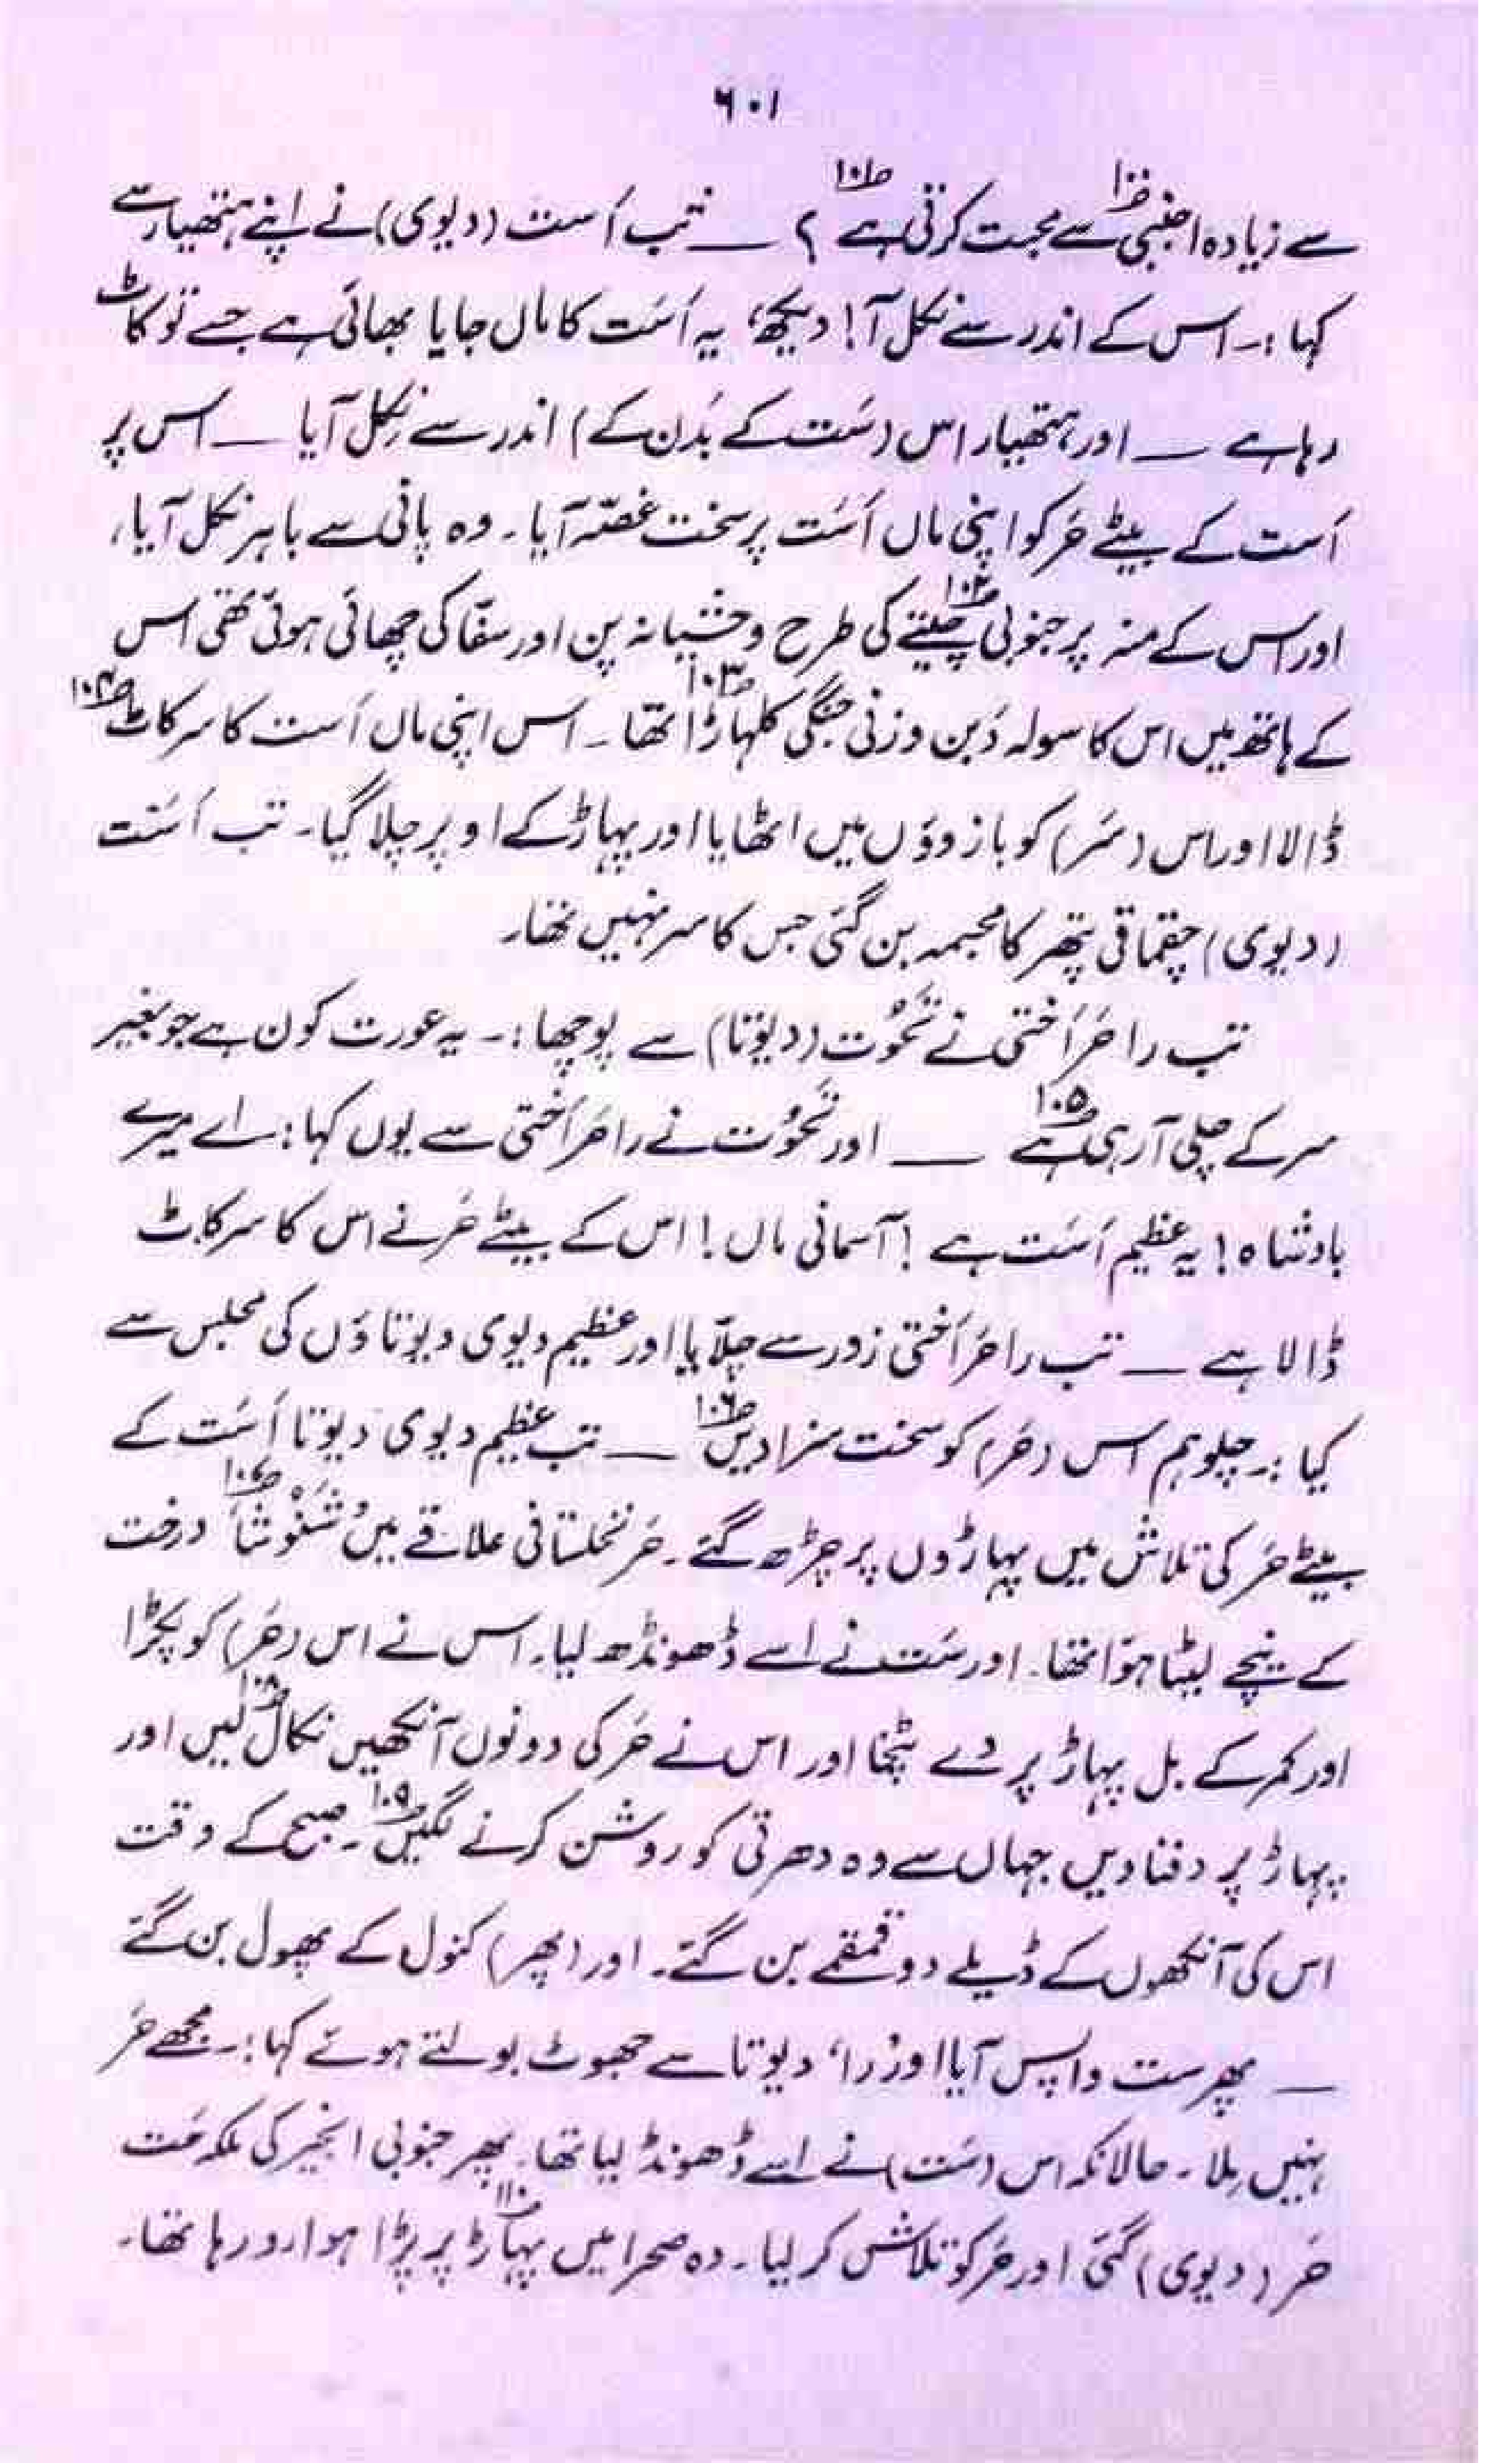 ۶۰۱
سے زیادہ اجنبی۱۰۰ سے محبت کرتی ہے۱۰۱ ؟ ــ تب اَست (دیوی) نے اپنے ہتھیار سے
کہا :۔ اس کے اندر سے نکل آ! دیکھ، یہ اَسَت کا ماں جایا بھائی ہے جسے تو کاٹ
رہا ہے ــ اور ہتھیار اس (سَت کے بَدن کے) اندر سے نِکل آیا ــ اس پر
اَست کے بیٹے حَر کو اپنی ماں اَسَت پر سخت غصّہ آیا۔ وہ پانی سے باہر نکل آیا،
اور اس کے منہ پر جنوبی چیتے۱۰۲ کی طرح وحشیانہ پن اور سفّاکی چھائی ہوئی تھی اس
کے ہاتھ میں اس کا سولہ دَبن وزنی جنگی کلہاڑا۱۰۳ تھا۔ اس اپنی ماں اَست کا سر کاٹ۱۰۴
ڈالا اور اس (سَر) کو بازوؤں میں اٹھایا اور پہاڑ کے اوپر چلا گیا۔ تب اَسَت
(دیوی) چقماقی پتھر کا مجسمہ بن گئی جس کا سر نہیں تھا۔
تب را حَرَاَختی نے تَحُوت (دیوتا) سے پوچھا :۔ یہ عورت کون ہے جو بغیر
سر کے چلی آ رہی ہے۱۰۵ ــ اور تَحُوت نے را حَرَاَختی سے یوں کہا :۔ اے میرے
بادشاہ! یہ عظیم اَسَت ہے! آسمانی ماں! اس کے بیٹے حَر نے اس کا سر کاٹ
ڈالا ہے ــ تب را حَرَاَختی زور سے چلّایا اور عظیم دیوی دیوتاؤں کی مجلس سے
کہا :۔ چلو ہم اس (حَر) کو سخت سزا دیں۱۰۶ ــ تب عظیم دیوی دیوتا اَسَت کے
بیٹے حَر کی تلاش میں پہاڑوں پر چڑھ گئے۔ حَر نخلستانی علاقے میں شَنُوشَا۱۰۷ درخت
کے نیچے لیٹا ہوا تھا۔ اور سَت نے اسے ڈھونڈھ لیا۔ اس نے اس (حَر) کو پکڑا
اور کمر کے بل پہاڑ پر دے پٹخا اور اس نے حَر کی دونوں آنکھیں نکال۱۰۸ لیں اور
پہاڑ پر دفنا دیں جہاں سے وہ دھرتی کو روشن کرنے لگیں۱۰۹۔ صبح کے وقت
اس کی آنکھوں کے ڈیلے دو قمقمے بن گئے۔ اور (پھر) کنول کے پھول بن گئے
ــ پھر ست واپس آیا اور ’را‘ دیوتا سے جھوٹ بولتے ہوئے کہا :۔ مجھے حَر
نہیں مِلا۔ حالانکہ اس (سَت) نے اسے ڈھونڈ لیا تھا۔ پھر جنوبی انجیر کی ملکہ حَت
حَر (دیوی) گئی اور حَر کو تلاش کر لیا۔ وہ صحرا میں پہاڑ۱۱۰ پر پڑا ہوا رو رہا تھا۔